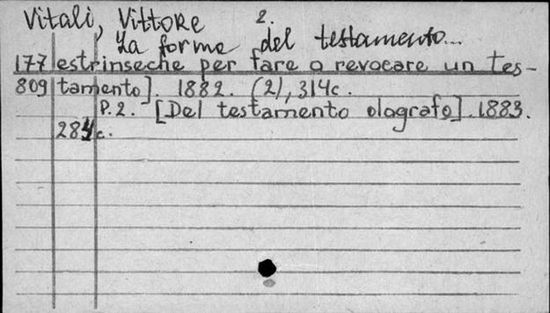 Vitali, Vittore 2.
La forma del testamento...
177 estrinseche per fare o revocare un tes-
809 tamento]. 1882. (2), 314c.
P.2. [Del testamento olografo]. 1883.
284c.